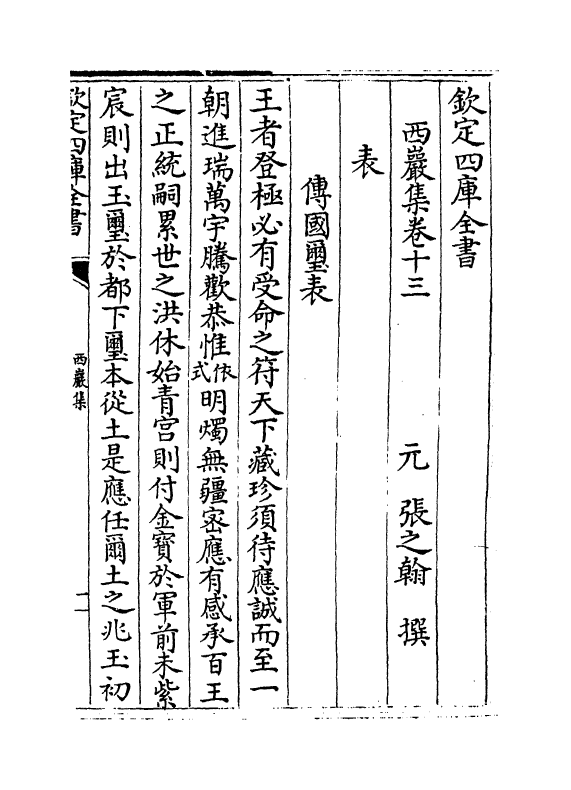 欽定四庫全書
西巖集卷十三
元 張之翰 撰
表
傳國璽表
王者登極必有受命之符天下藏珍須待應誠而至一
朝進瑞萬宇騰歡恭惟依式明燭無疆密應有感承百王
之正統嗣累世之洪休始青宫則付金寳於軍前未紫
宸則出玉璽於都下璽本從土是應任爾土之兆玉初
欽定四庫全書
西巖集
一